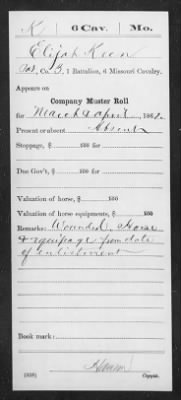 K 6 Cav. Mo.
Elijah Keen
Co. B, 1 Battalion, 6 Missouri Cavalry.
Appears on
Company Muster Roll
for March & April, 186
Present or absent Absent
Stoppage, $ 100 for
Due Gov't, $ 100 for
Valuation of horse, $ 100
Valuation of horse equipments, $ 100
Remarks: Wounded. Horse
& equipage from date
of enlistment
Book mark:
(858) Copyist.